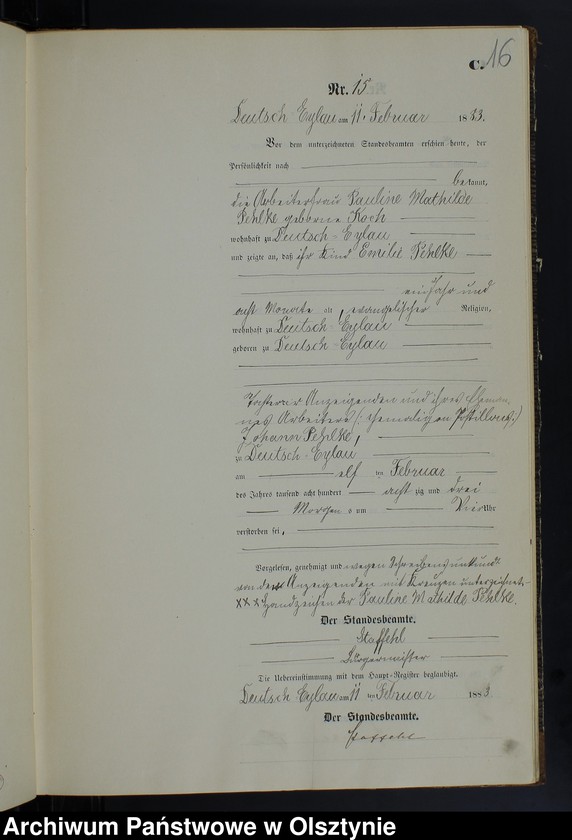 C. 16
Nr. 15.
Deutsch Eylau am 11. Februar 1883.
Vor dem unterzeichneten Standesbeamten erschien heute, der
Persönlichkeit nach
bekannt,
die Arbeiterfrau Pauline Mathilde
Pehlke geborne Koch
wohnhaft zu Deutsch-Eylau
und zeigte an, daß ihr Kind Emilie Pehlke
ein Jahr und
acht Monate alt, evangelischer Religion,
wohnhaft zu Deutsch-Eylau
geboren zu Deutsch-Eylau
Tochter der Anzeigenden und ihres Eheman-
nes Arbeiters (: ehemaligen Postillons :)
Johann Pehlke,
zu Deutsch-Eylau
am elf ten Februar
des Jahres tausend acht hundert acht zig und drei
Morgens um vier Uhr
verstorben sei,
Vorgelesen, genehmigt und wegen Schreibensunkunde
von der Anzeigenden mit Kreuzen unterzeichnet.
XXX Handzeichen der Pauline Mathilde Pehlke.
Der Standesbeamte.
Staffehl
Bürgermeister
Die Uebereinstimmung mit dem Haupt-Register beglaubigt.
Deutsch Eylau am 11 ten Februar 1883.
Der Standesbeamte.
Staffehl
Archiwum Państwowe w Olsztynie